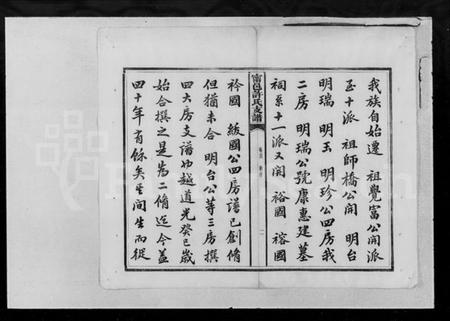 我族自始遷 祖覺富公開派
至十派 祖師橋公開 明台
明瑞 明玉 明珍公四房我
二房 明瑞公號康惠建墓
祠系十一派又開 裕國 裕國
甯邑許氏支譜
衿國 級國公四房譜已創脩
但猶未合 明台公等三房撰
四大房支譜也越道光癸巳歲
始合撰之是為二脩迄今蓋
四十年有餘矣其間生而從